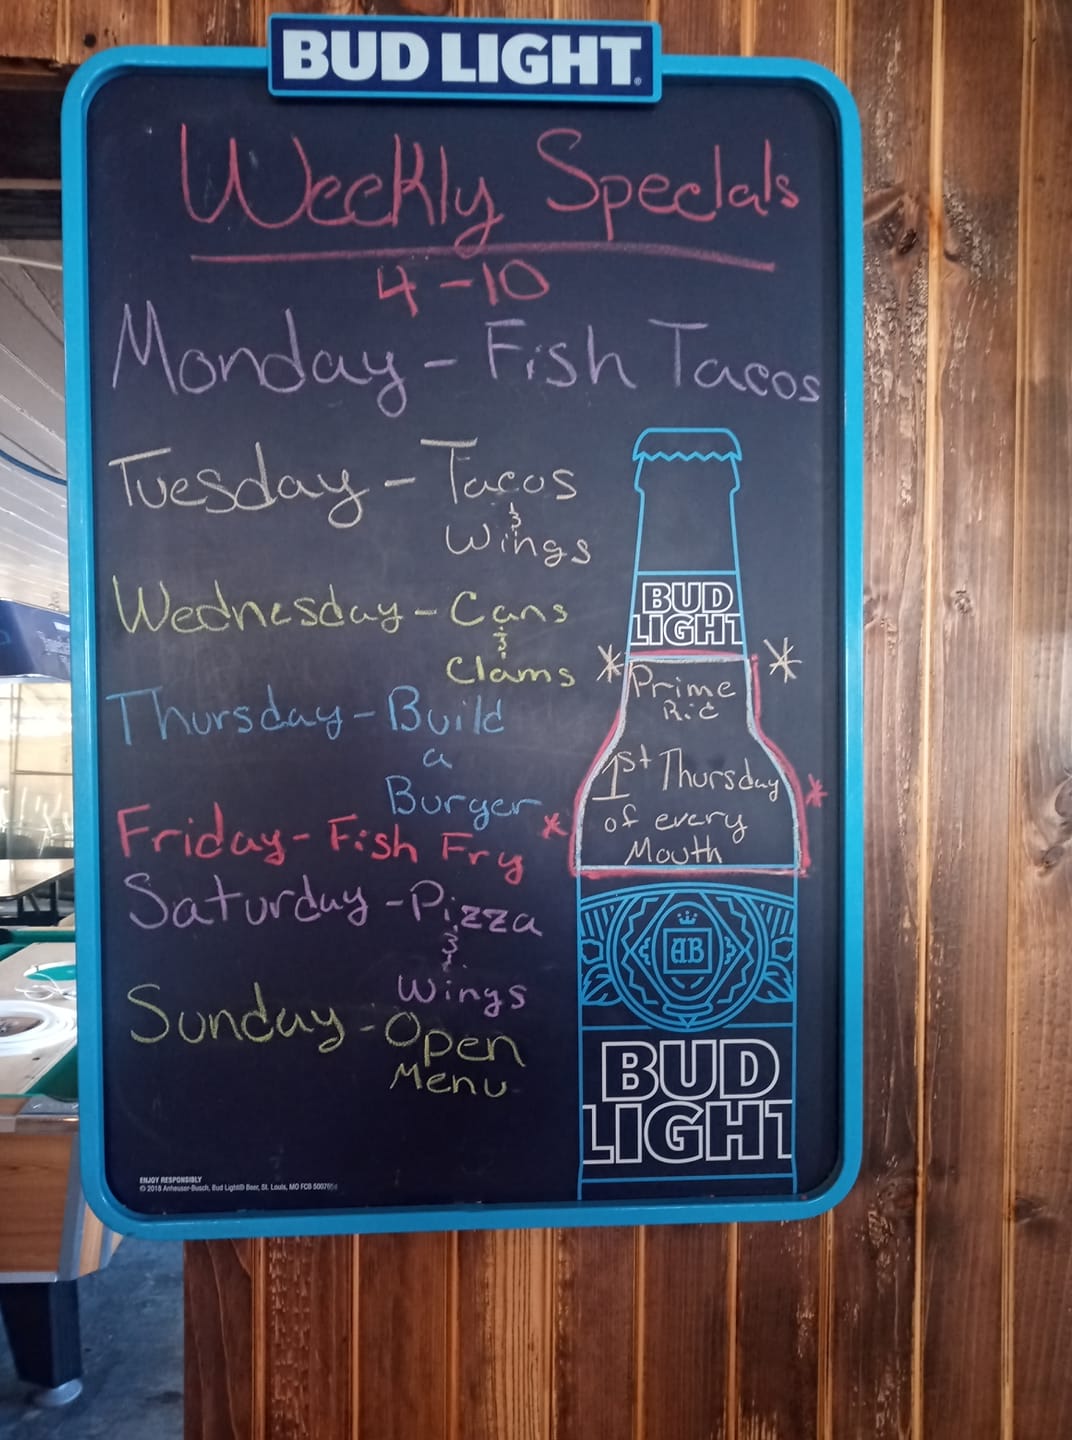 BUD LIGHT
Weekly Specials
4-10
Monday - Fish Tacos
Tuesday - Tacos
&
Wings
Wednesday - Cans
&
Clams
Thursday - Build
a
Burger
Friday - Fish Fry
Saturday - Pizza
&
Wings
Sunday - Open
Menu
BUD
LIGHT
Prime
Rib
1st Thursday
of every
Month
AB
BUD
LIGHT
ENJOY RESPONSIBLY
© 2018 Anheuser-Busch, Bud Light® Beer, St. Louis, MO